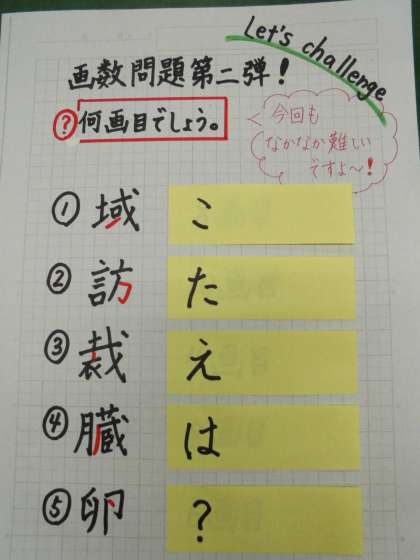 Let's challenge
画数問題第二弾！
？何画目でしょう。
今回も
なかなか難しい
ですよ〜！
① 域 こ
② 訪 た
③ 裁 え
④ 臓 は
⑤ 卵 ？